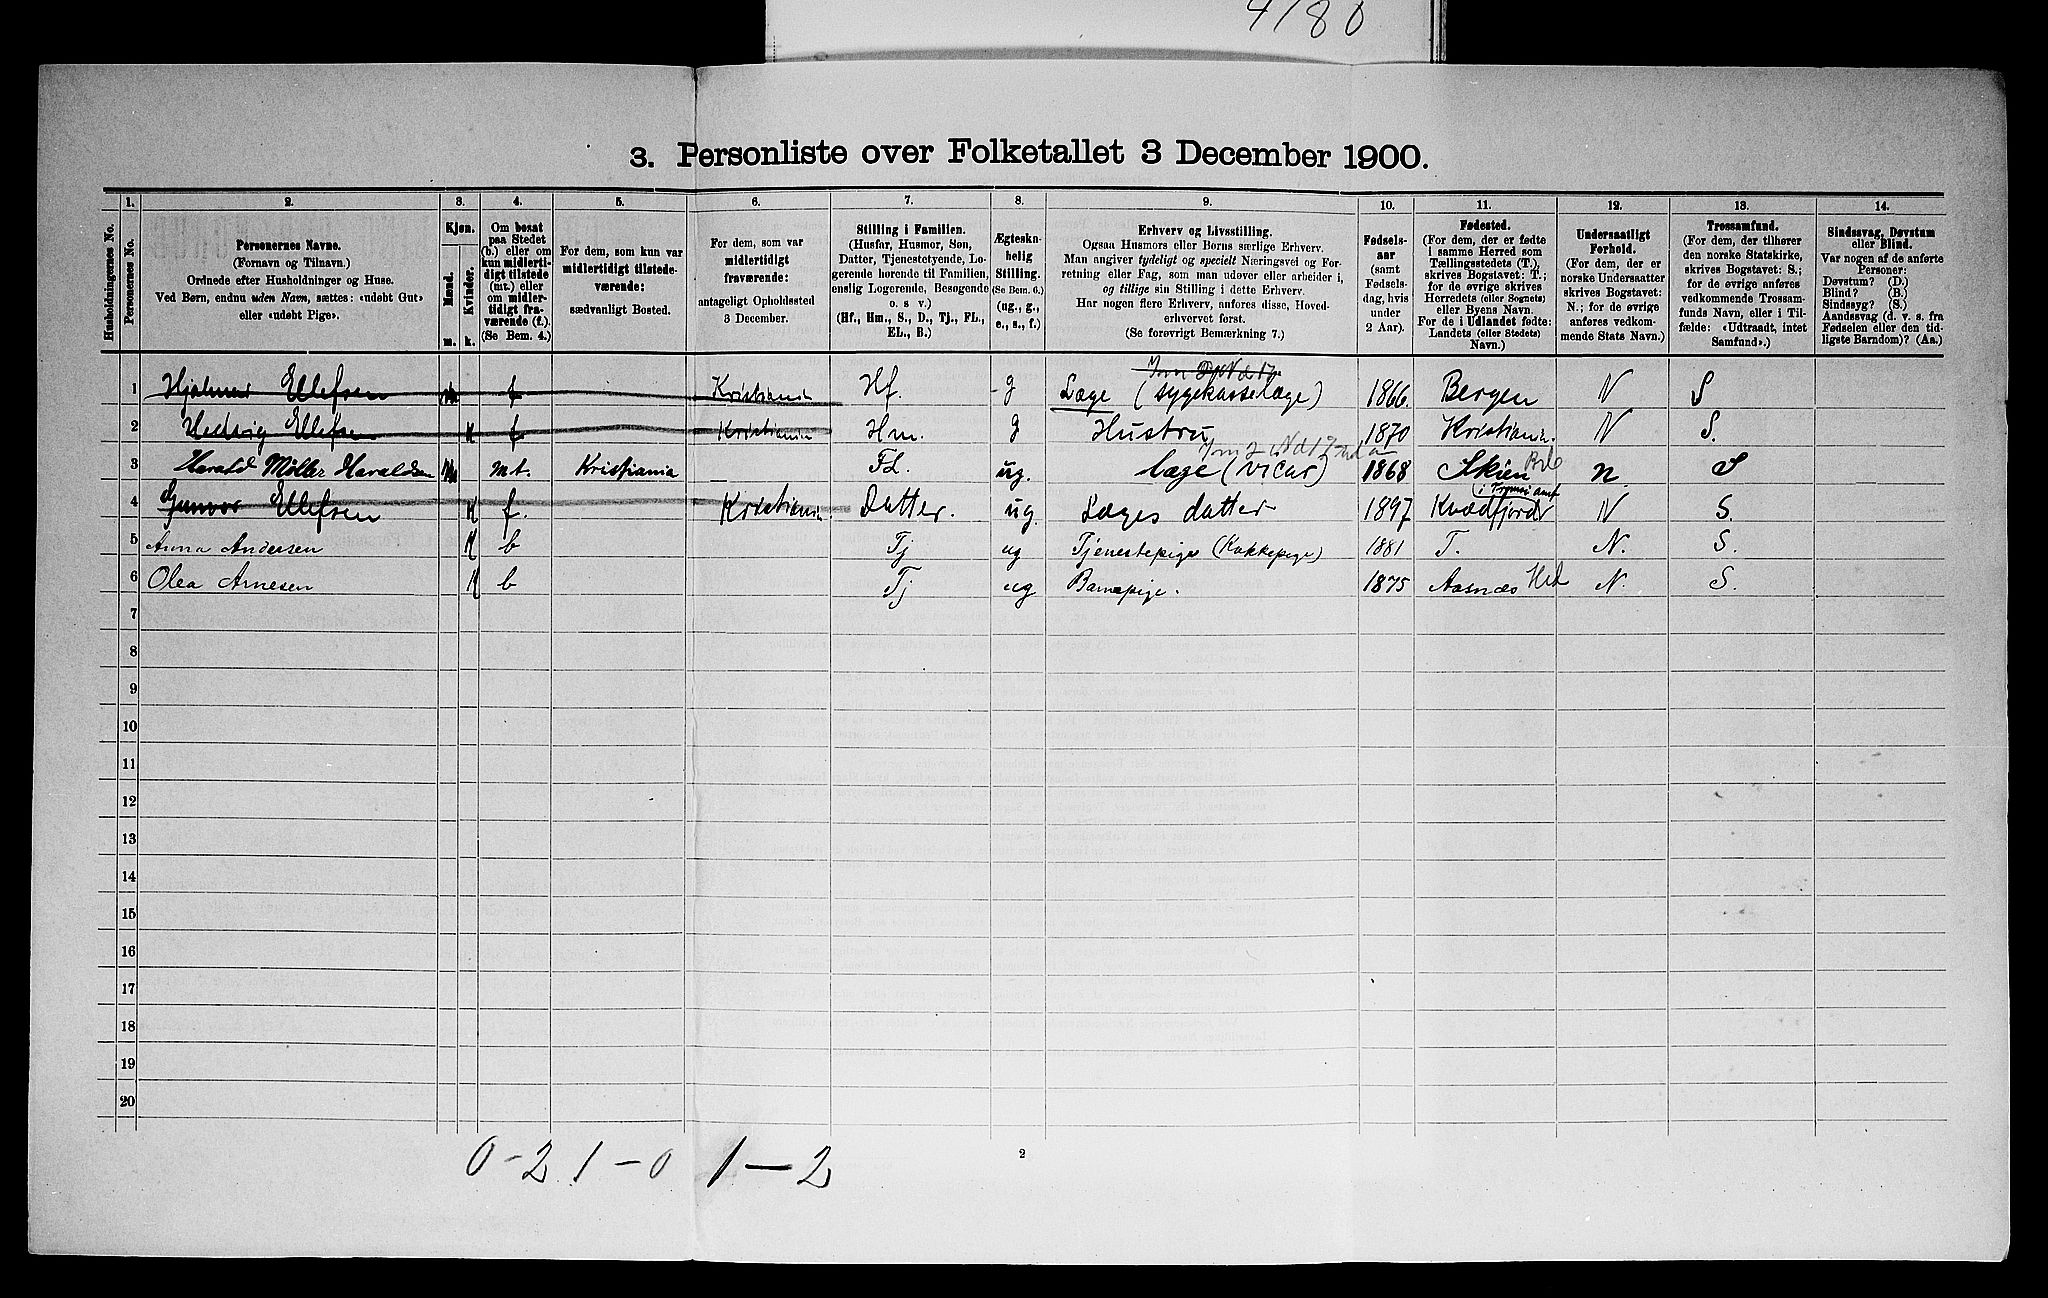 4180
3. Personliste over Folketallet 3 December 1900.
Husholdningernes No.
1.
Personernes No.
2.
Personernes Navne.
(Fornavn og Tilnavn.)
Ordnede efter Husholdninger og Huse.
Ved Børn, endnu uden Navn, sættes: «udøbt Gut»
eller «udøbt Pige».
3.
Kjøn.
Mænd.
m.
Kvinder.
k.
4.
Om bosat
paa Stedet
(b.) eller om
kun midlerti-
digt tilstede
(mt.) eller
om midler-
tidigt fra-
værende (f.).
(Se Bem. 4.)
5.
For dem, som kun var
midlertidigt tilstede-
værende:
sædvanligt Bosted.
6.
For dem, som var
midlertidigt
fraværende:
antageligt Opholdssted
3 December.
7.
Stilling i Familien.
(Husfar, Husmor, Søn,
Datter, Tjenestetyende, Lo-
gerende hørende til Familien,
enslig Logerende, Besøgende
o. s v.)
(Hf., Hm., S., D., Tj., FL.,
EL., B.)
8.
Ægteska-
belig
Stilling.
(Se Bem. 6.)
(ug., g.,
e., s., f.)
9.
Erhverv og Livsstilling.
Ogsaa Husmors eller Børns særlige Erhverv.
Man angiver tydeligt og specielt Næringsvei og For-
retning eller Fag, som man udøver eller arbeider i,
og tillige sin Stilling i dette Erhverv.
Har nogen flere Erhverv, anføres disse, Hoved-
erhvervet først.
(Se forøvrigt Bemærkning 7.)
10.
Fødsels-
aar
(samt
Fødsels-
dag, hvis
under
2 Aar).
11.
Fødested.
(For dem, der er fødte
i samme Herred som
Tællingsstedets (T.),
skrives Bogstavet: T.;
for de øvrige skrives
Herredets (eller Sognets)
eller Byens Navn.
For de i Udlandet fødte:
Landets (eller Stedets)
Navn.)
12.
Undersaatligt
Forhold.
(For dem, der er
norske Undersaatter
skrives Bogstavet:
N.; for de øvrige
anføres vedkom-
mende Stats Navn.)
13.
Trossamfund.
(For dem, der tilhører
den norske Statskirke,
skrives Bogstavet: S.;
for de øvrige anføres
vedkommende Trossam-
funds Navn, eller i Til-
fælde: «Udtraadt, intet
Samfund».)
14.
Sindssvag, Døvstum
eller Blind.
Var nogen af de anførte
Personer:
Døvstum? (D.)
Blind? (B.)
Sindssyg? (S.)
Aandssvag (d. v. s. fra
Fødselen eller den tid-
ligste Barndom)? (Aa.)
1 Hjalmar Ellefsen m f Kristiania Hf. g Læge (sygekasselæge) 1866. Bergen N S
2 Hedvig Ellefsen K f Kristiania Hm. g Hustru 1870 Kristiania. N S.
3 Harald Møller Haraldsen m mt. Kristiania FL. ug. læge (vicar) 1868 Skien n. S
(i Tromsø amt
4 Gunvor Ellefsen K f. Kristiania. Datter. ug. Læges datter 1897 Kvædfjord) N S.
5 Anna Andersen K b Tj ug Tjenestepige (Kokkepige) 1881 T. N. S.
6 Olea Arnesen K b Tj ug Barnepige. 1875 Aasnæs Hed N. S.
7
8
9
10
11
12
13
14
15
16
17
18
19
20
0-2 1-0 1-2
2